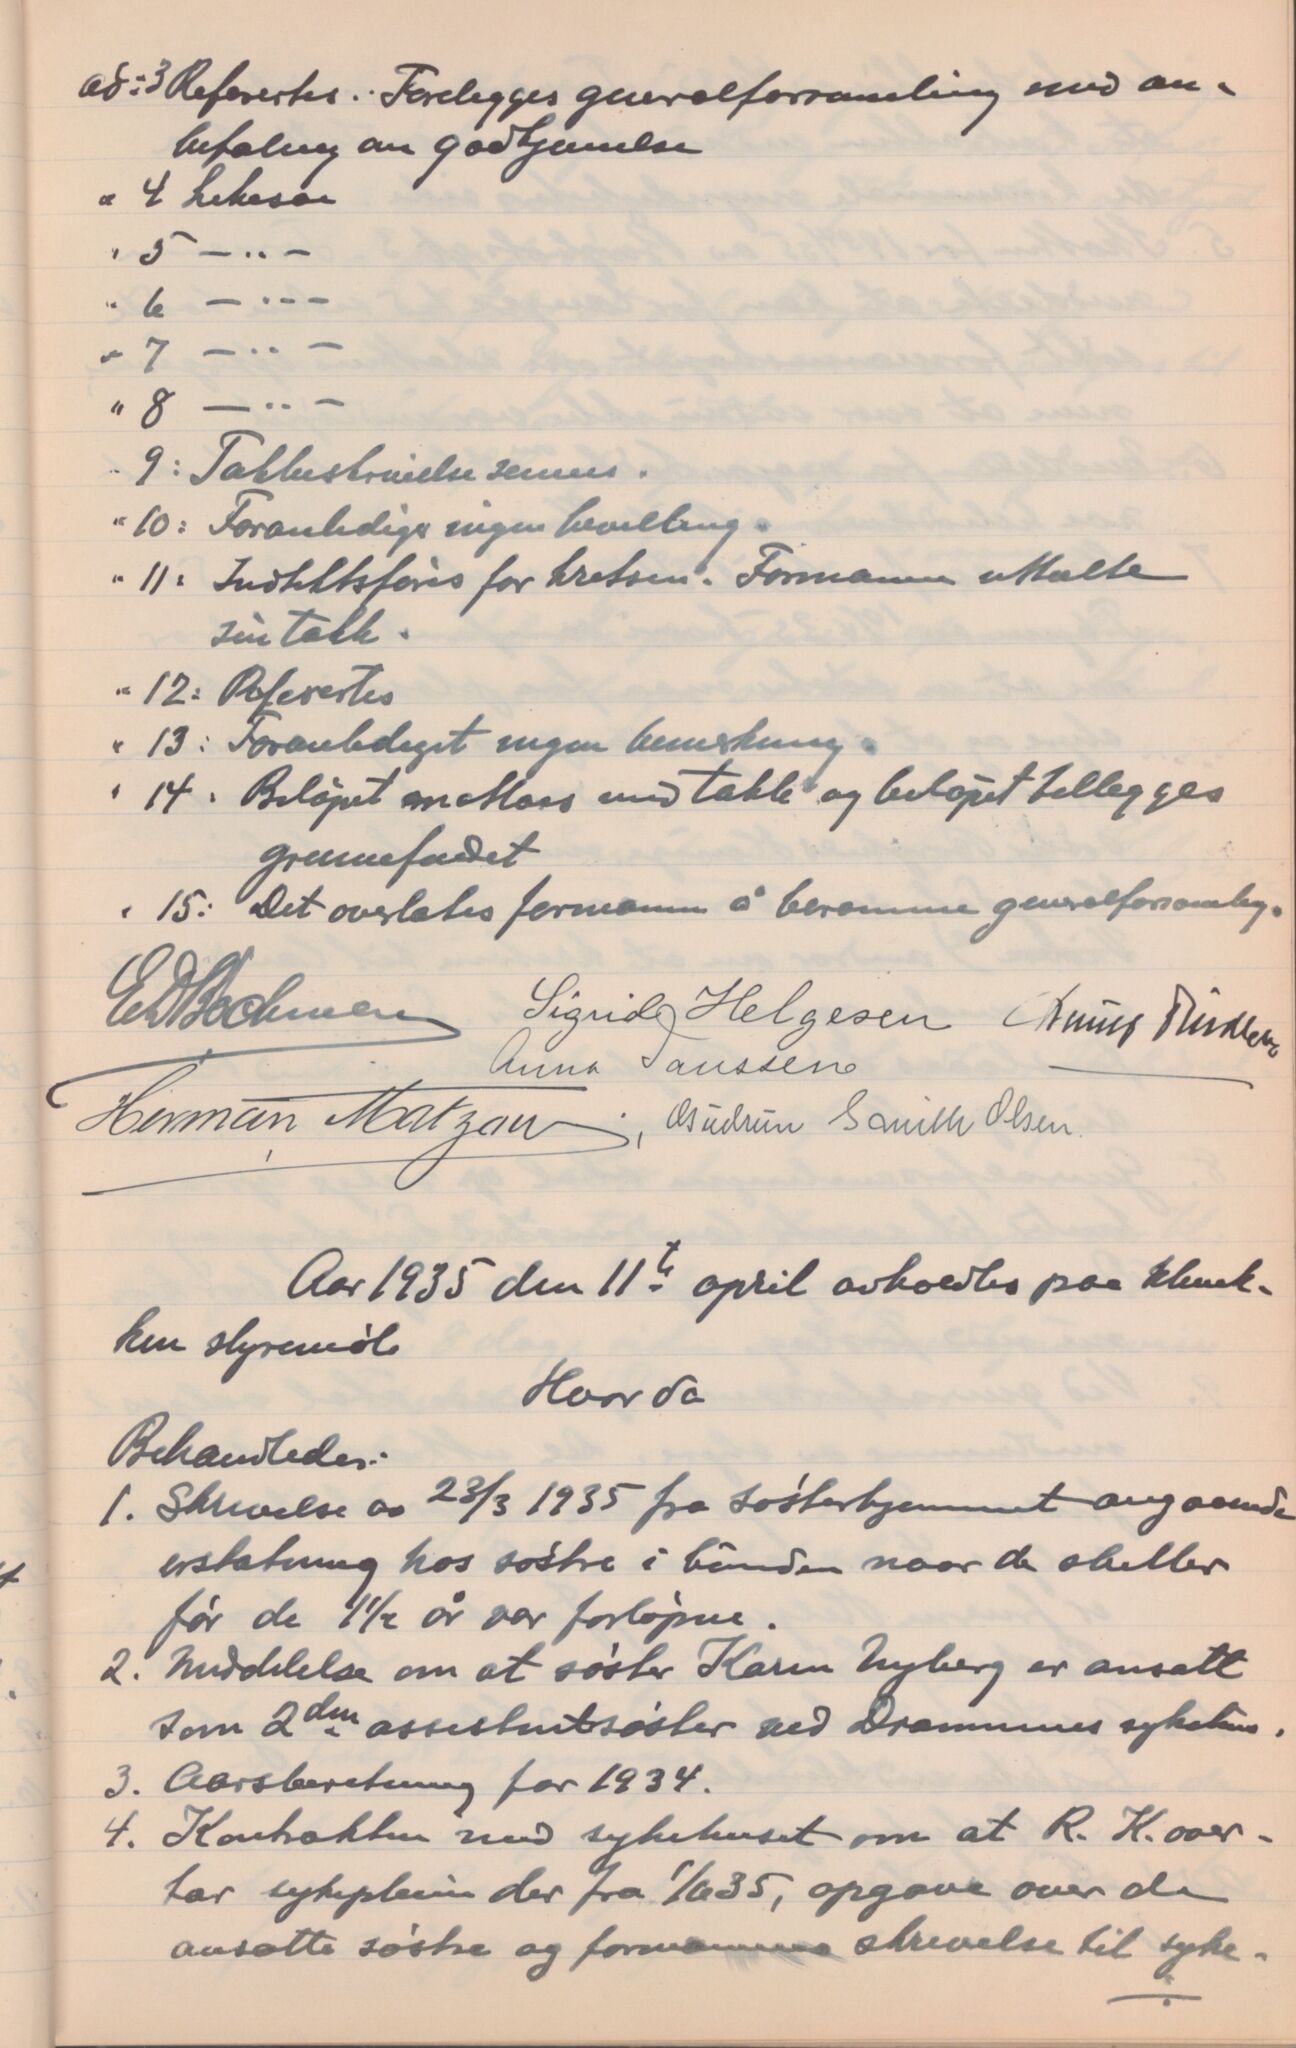 ad: 3 Referertes. Forelegges generalforsamling med an-
befaling om godkjennelse
" 4 Likesaa
" 5 — " —
" 6 — " —
" 7 — " —
" 8 — " —
" 9: Takkeskrivelse sennes.
" 10: Foranlediget ingen bevilling.
" 11: Indtektsføres for kretsen. Formannen uttalte
sin takk.
" 12: Refertes
" 13: Foranlediget ingen bemerkning.
" 14. Beløpet mottas med takk og beløpet tillegges
grunnfondet
" 15: Det overlates formannen å beramme generalforsamling.
Sigrid Helgesen
Anna Janssen
Herman Matzow, Gudrun Smith Olsen.
Aar 1935 den 11te april avholdtes paa klinik-
ken styremøte
Hvor da
Behandledes:
1. Skrivelse av 23/3 1935 fra søsterhjemmet angaaende
erstatning hos søstre i bunden naar de slutter
før de 1 1/2 år var forløpne.
2. Meddelelse om at søster Karen Nyberg er ansatt
som 2den assistentsøster ved Drammens sykehus.
3. Aarsberetning for 1934.
4. Kontrakten med sykehuset om at R. K. over-
tar sykepleien der fra 1/6 35, opgave over de
ansatte søstre og formannens skrivelse til syke-